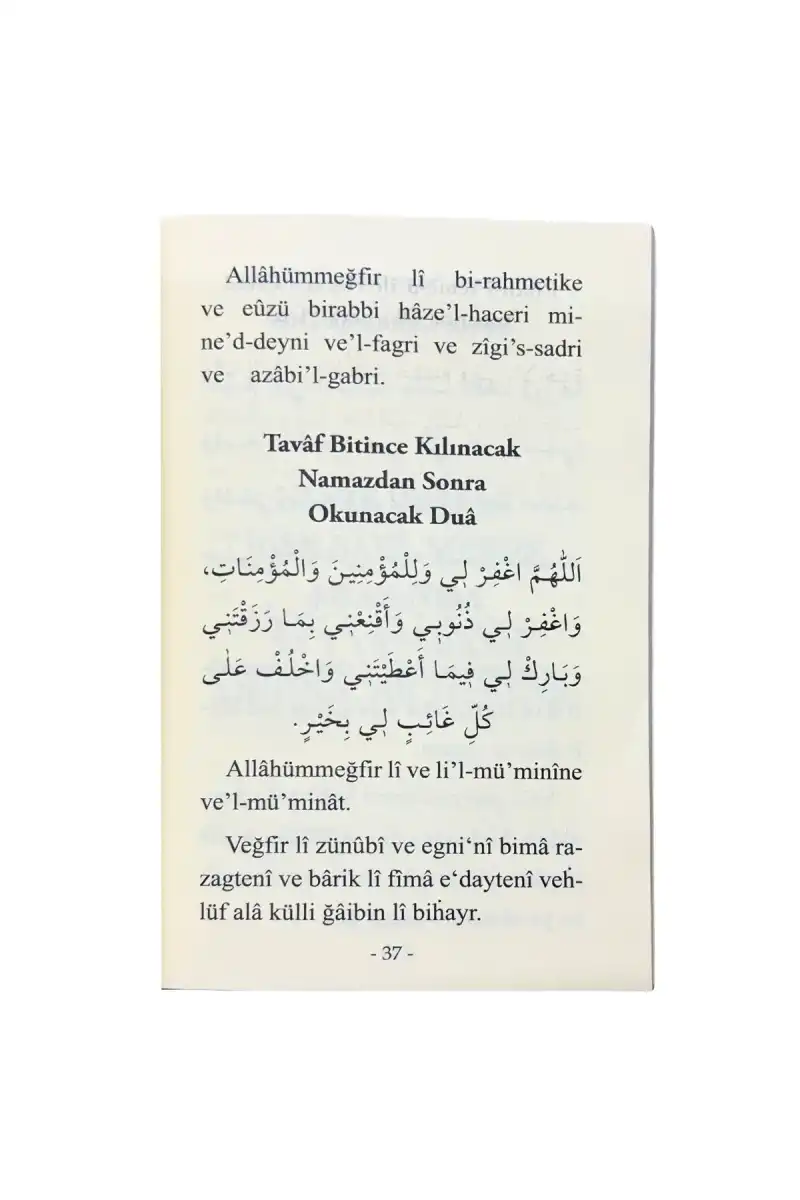 Allâhümmeğfir lî bi-rahmetike
ve eûzü birabbi hâze’l-haceri mi-
ne’d-deyni ve’l-fagri ve zîgi’s-sadri
ve azâbi’l-gabri.
Tavâf Bitince Kılınacak
Namazdan Sonra
Okunacak Duâ
اَللّٰهُمَّ اغْفِرْ لِي وَلِلْمُؤْمِنِينَ وَالْمُؤْمِنَاتِ،
وَاغْفِرْ لِي ذُنُوبِي وَأَقْنِعْنِي بِمَا رَزَقْتَنِي
وَبَارِكْ لِي فِيمَا أَعْطَيْتَنِي وَاخْلُفْ عَلٰى
كُلِّ غَائِبٍ لِي بِخَيْرٍ.
Allâhümmeğfir lî ve li’l-mü’minîne
ve’l-mü’minât.
Veğfir lî zünûbî ve egni‘nî bimâ ra-
zagtenî ve bârik lî fîmâ e‘daytenî veḣ-
lüf alâ külli ğâibin lî biḣayr.
- 37 -